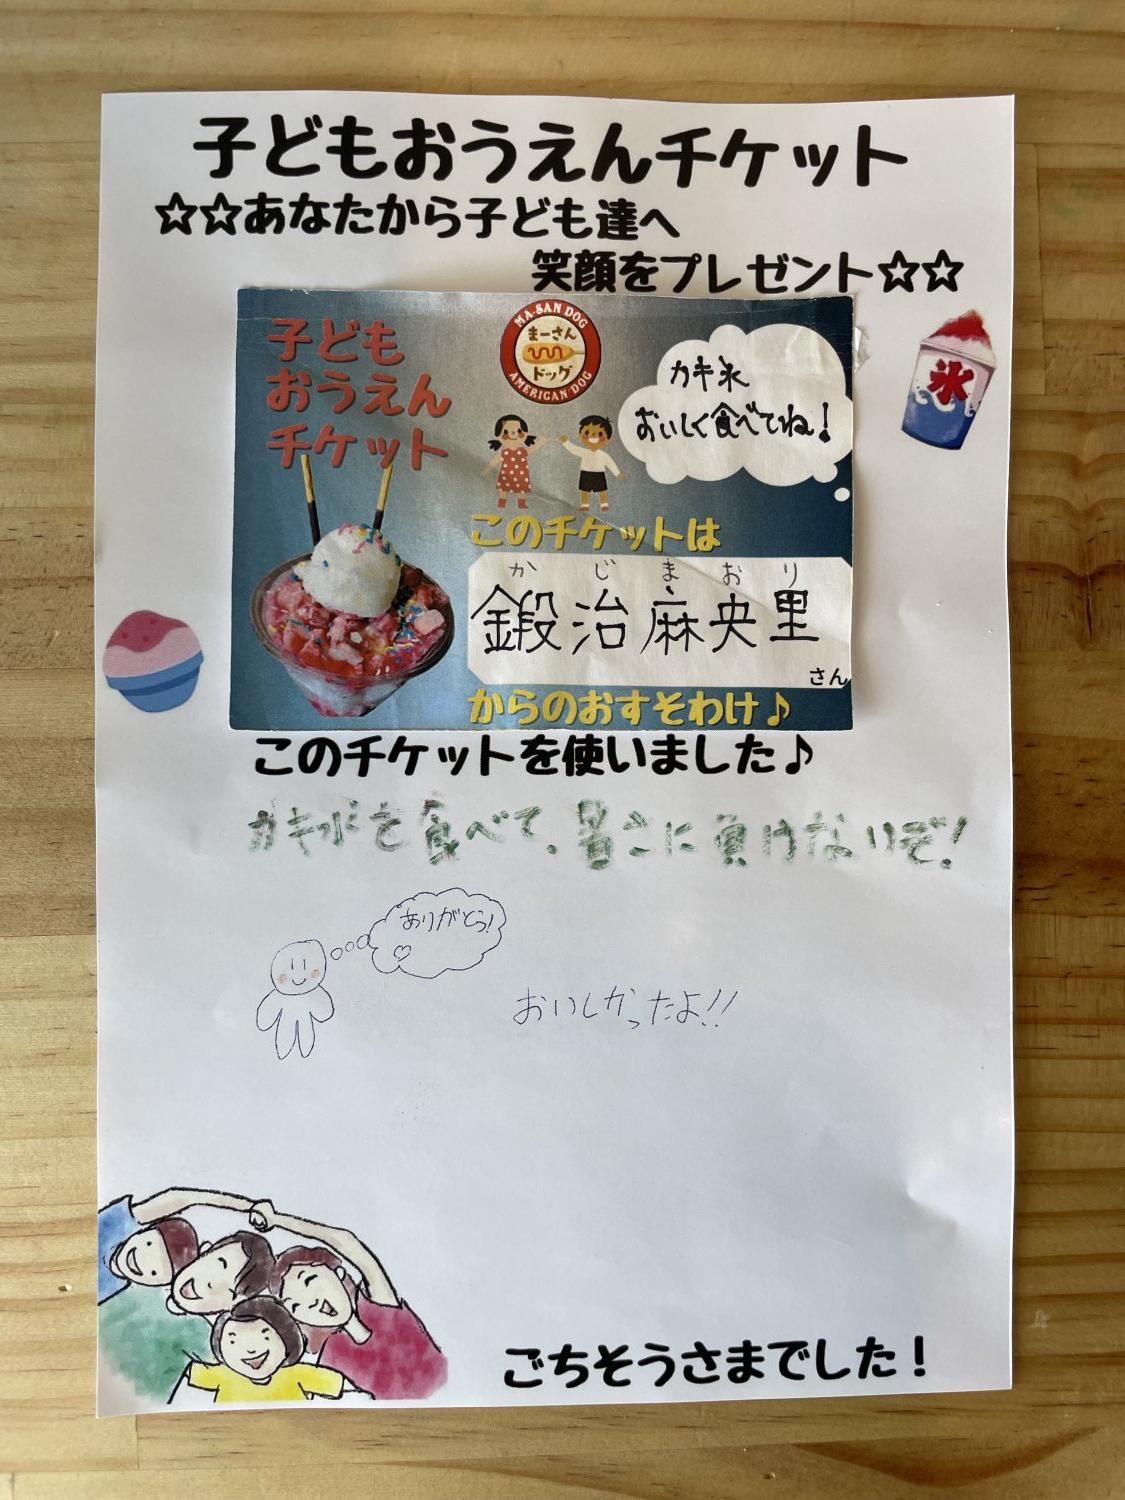 子どもおうえんチケット
☆☆あなたから子ども達へ
笑顔をプレゼント☆☆
子ども
おうえん
チケット
MA-SAN DOG
まーさん
ドッグ
AMERICAN DOG
カキ氷
おいしく食べてね!
氷
このチケットは
かじまおり
鍛治麻央里
さん
からのおすそわけ♪
このチケットを使いました♪
カキ氷を食べて、暑さに負けないぞ!
ありがとう!
おいしかったよ!!
ごちそうさまでした!